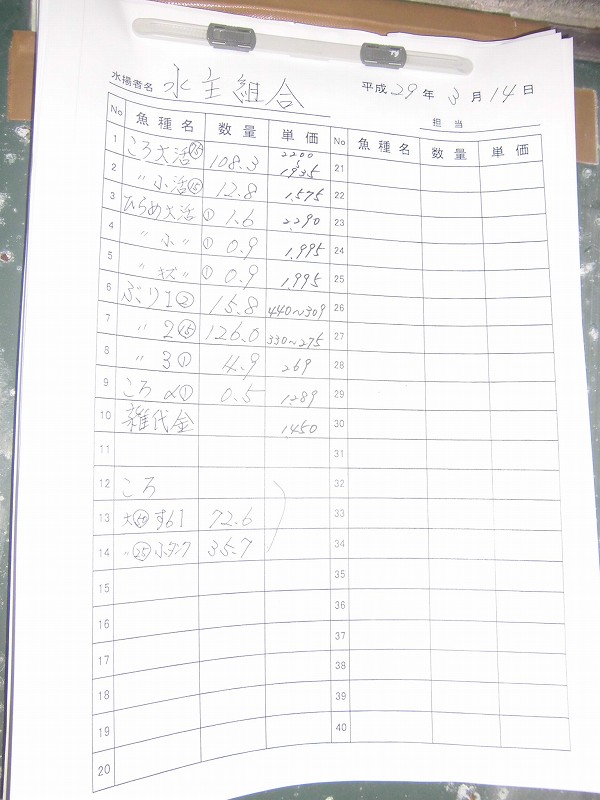 水揚者名 水主組合 平成29年3月14日
担当
No 魚種名 数量 単価 No 魚種名 数量 単価
1 ころ大活 108.3 2200 1,935 21
2 〃 小活 12.8 1,575 22
3 ひらめ大活 ① 1.6 2,290 23
4 〃 小〃 ① 0.9 1,995 24
5 〃 キズ〃 ① 0.9 1,995 25
6 ぶり1② 15.8 440~309 26
7 〃 2⑮ 126.0 330~275 27
8 〃 3① 4.9 269 28
9 ころ ① 0.5 1,289 29
10 雑代金 1,450 30
11 31
12 ころ 32
13 大 72.6 33
14 〃㉕ 35.7 34
15 35
16 36
17 37
18 38
19 39
20 40